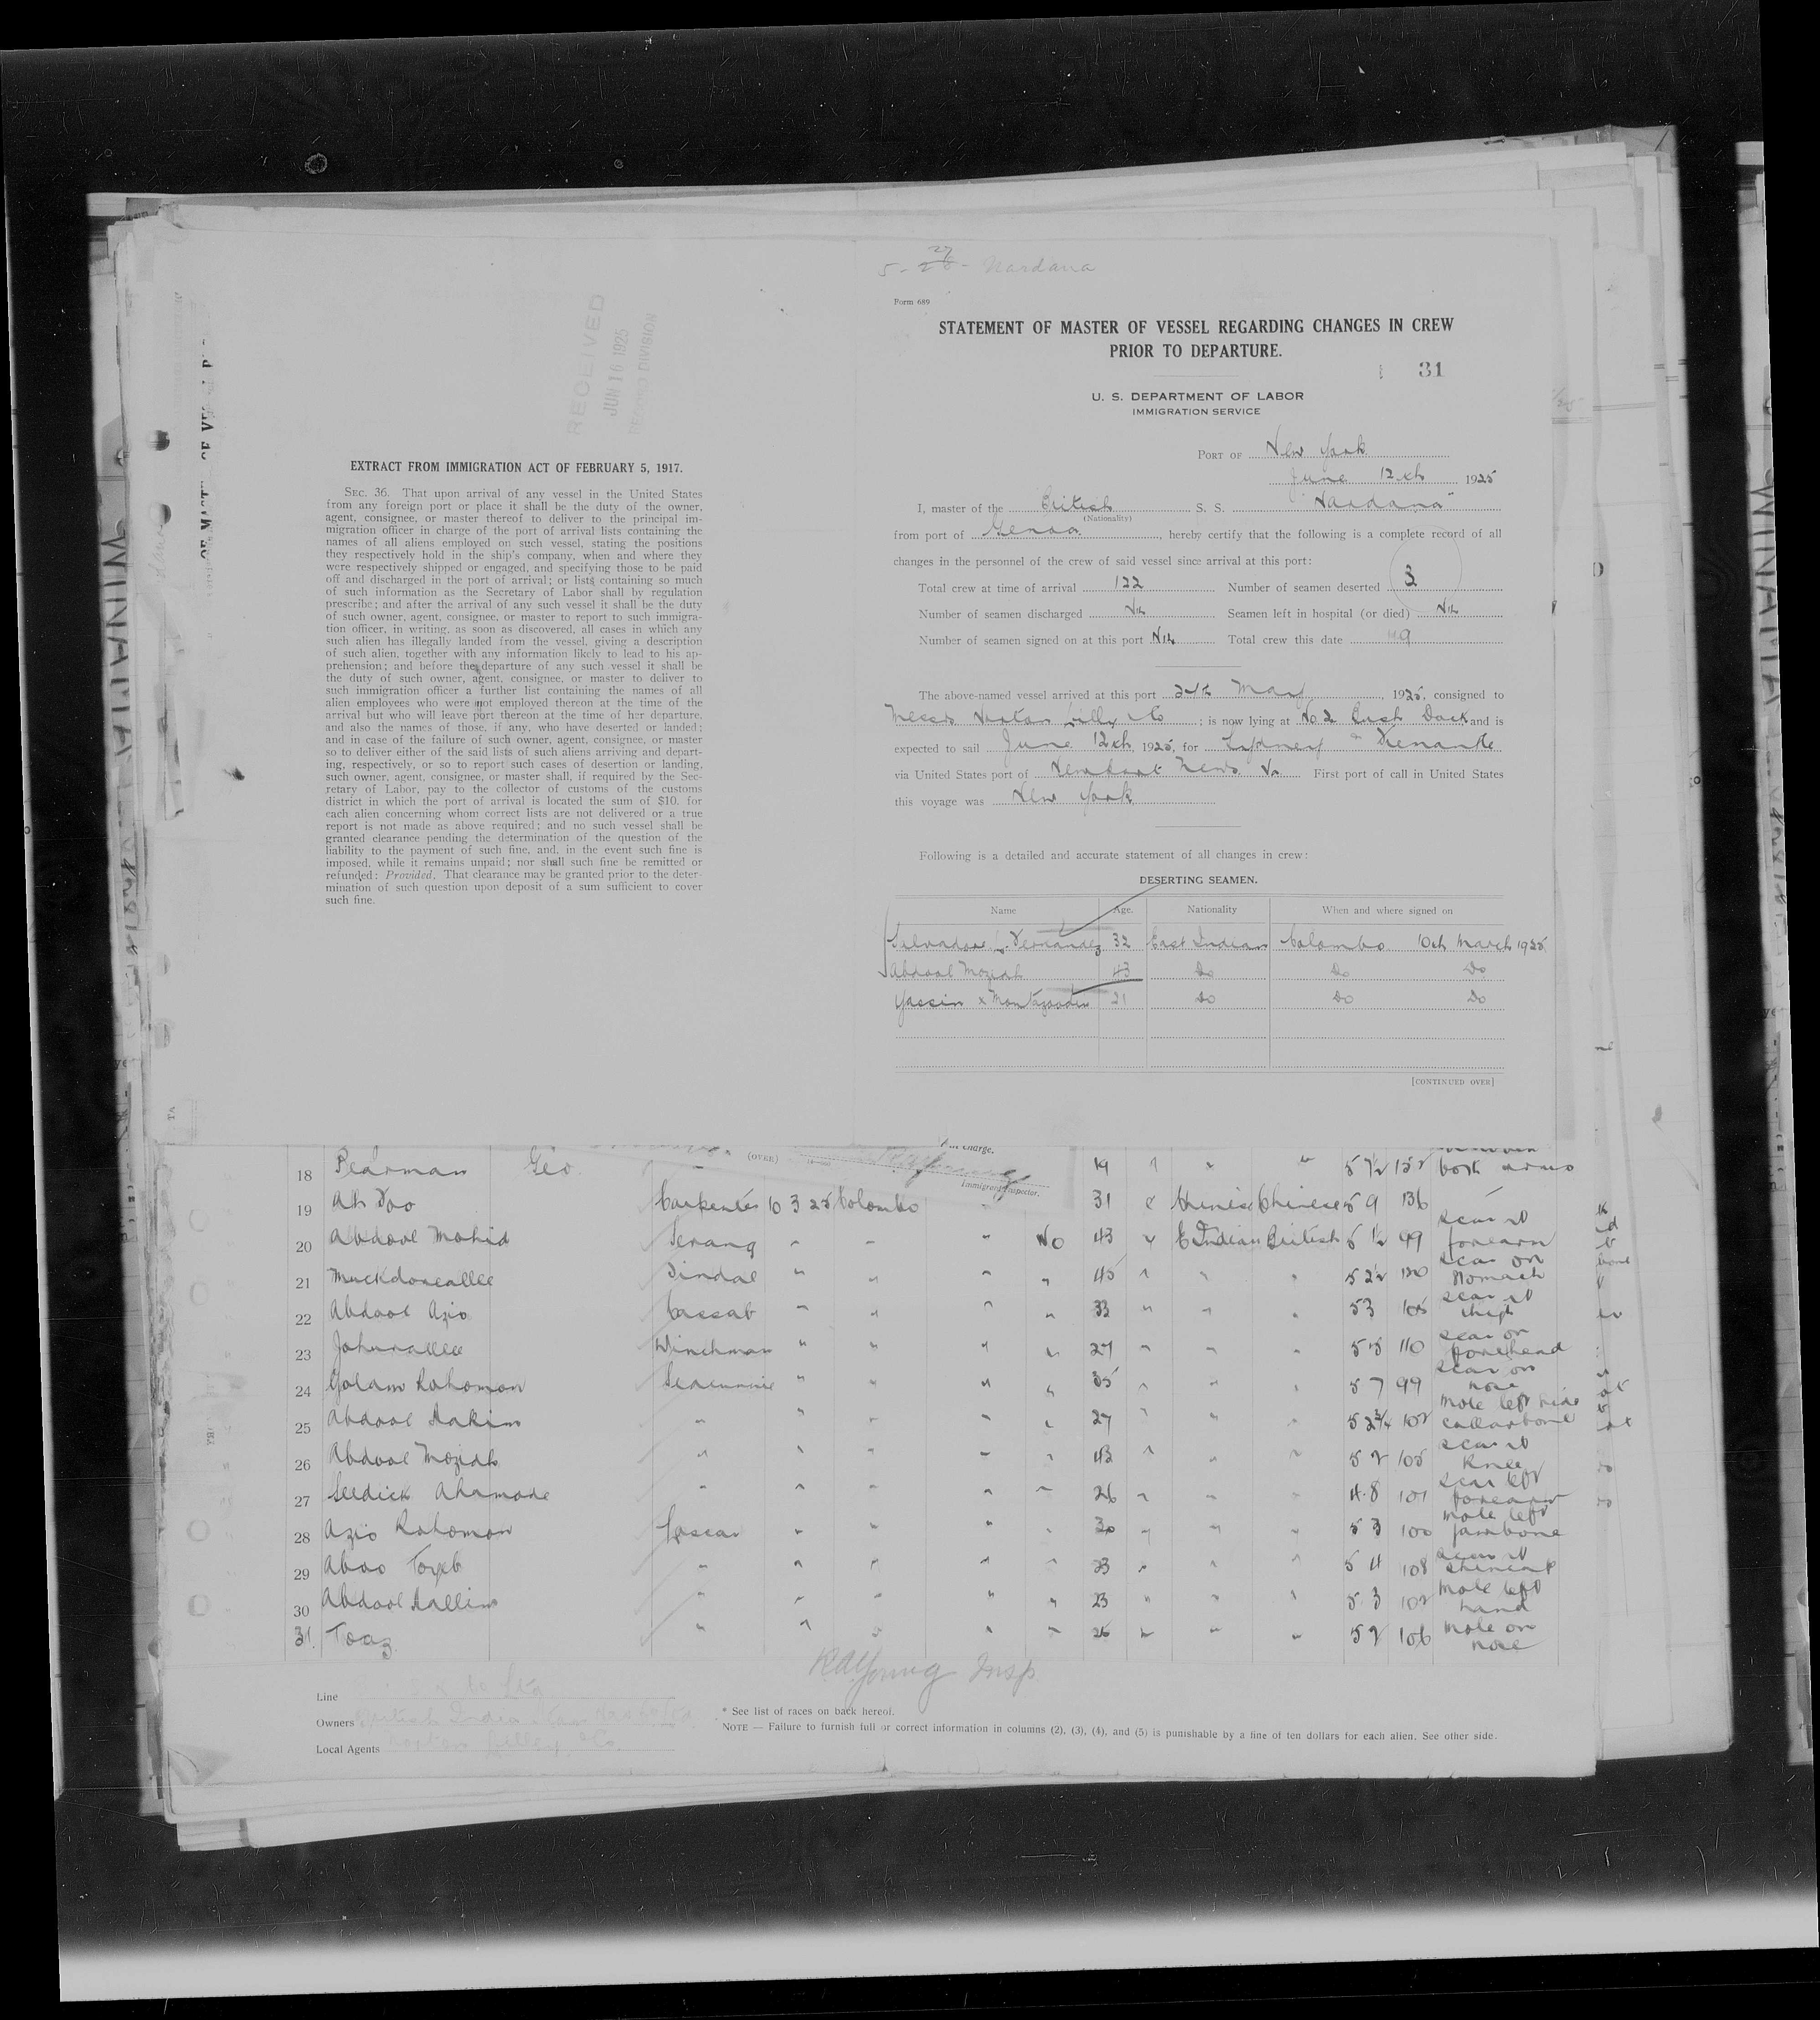 EXTRACT FROM IMMIGRATION ACT OF FEBRUARY 5, 1917.
SEC. 36. That upon arrival of any vessel in the United States
from any foreign port or place it shall be the duty of the owner,
agent, consignee, or master thereof to deliver to the principal im-
migration officer in charge of the port of arrival lists containing the
names of all aliens employed on such vessel, stating the positions
they respectively hold in the ship's company, when and where they
were respectively shipped or engaged, and specifying those to be paid
off and discharged in the port of arrival; or lists containing so much
of such information as the Secretary of Labor shall by regulation
prescribe; and after the arrival of any such vessel it shall be the duty
of such owner, agent, consignee, or master to report to such immigra-
tion officer, in writing, as soon as discovered, all cases in which any
such alien has illegally landed from the vessel, giving a description
of such alien, together with any information likely to lead to his ap-
prehension; and before the departure of any such vessel it shall be
the duty of such owner, agent, consignee, or master to deliver to
such immigration officer a further list containing the names of all
alien employees who were not employed thereon at the time of the
arrival but who will leave port thereon at the time of her departure,
and also the names of those, if any, who have deserted or landed;
and in case of the failure of such owner, agent, consignee, or master
so to deliver either of the said lists of such aliens arriving and depart-
ing, respectively, or so to report such cases of desertion or landing,
such owner, agent, consignee, or master shall, if required by the Sec-
retary of Labor, pay to the collector of customs of the customs
district in which the port of arrival is located the sum of $10. for
each alien concerning whom correct lists are not delivered or a true
report is not made as above required; and no such vessel shall be
granted clearance pending the determination of the question of the
liability to the payment of such fine, and, in the event such fine is
imposed, while it remains unpaid; nor shall such fine be remitted or
refunded: Provided, That clearance may be granted prior to the deter-
mination of such question upon deposit of a sum sufficient to cover
such fine.
RECEIVED
JUN 16 1925
RECORD DIVISION
5-27 Nardana
Form 689
STATEMENT OF MASTER OF VESSEL REGARDING CHANGES IN CREW
PRIOR TO DEPARTURE.
31
U. S. DEPARTMENT OF LABOR
IMMIGRATION SERVICE
PORT OF New York
June 12th 1925
I, master of the British S. S. "Nardana"
(Nationality)
from port of Genoa, hereby certify that the following is a complete record of all
changes in the personnel of the crew of said vessel since arrival at this port:
Total crew at time of arrival 122 Number of seamen deserted 3
Number of seamen discharged Nil Seamen left in hospital (or died) Nil
Number of seamen signed on at this port Nil Total crew this date
The above-named vessel arrived at this port May, 1925, consigned to
Messrs Norton Lilly & Co; is now lying at No 2 Bush Dock and is
expected to sail June 12th, 1925, for Sydney Fremantle
via United States port of Newport News Va First port of call in United States
this voyage was New York
Following is a detailed and accurate statement of all changes in crew:
DESERTING SEAMEN.
Name Age. Nationality When and where signed on
Salvadore Fernandez 32 East Indian Colombo 10th March 1925
Abdool Moziah 43 Do Do Do
Yassin x 21 Do Do Do
[CONTINUED OVER]
(OVER)
Immigrant Inspector.
18 Pearman Geo. 19 " " " 5 7½ 152 both arms
19 Ah Carpenter 10 3 25 Colombo " 31 Chinese Chinese 5 9 136
20 Abdool Serang " " " No 43 " E Indian British 5 1½ 99 scar rt forearm
21 Tindal " " " " 45 " " " 5 2½ 130 scar on stomach
22 Abdool Azio Cassab " " " " 33 " " " 5 3 105 scar rt thigh
23 Winchman " " " " 27 " " " 5 5 110 scar on forehead
24 Golam Rohoman " " " " 35 " " " 5 7 99 scar on nose
25 Abdool Hakim " " " " " 27 " " " 5 2¾ 102 mole left side collarbone
26 Abdool Moziah " " " " " 43 " " " 5 2 105 scar rt knee
27 Seedick Ahamode " " " " " 26 " " " 4 8 101 scar left forearm
28 Azio Rohoman Lascar " " " " 30 " " " 5 3 100 mole left jawbone
29 Aboo Toyeb " " " " " 33 " " " 5 4 108 scar rt
30 Abdool Hallim " " " " " 23 " " " 5 3 102 mole left hand
31. Toaz " " " " " 26 " " " 5 2 106 mole on nose
RA Young Insp.
Line
Owners British India
Local Agents Norton Lilley & Co.
* See list of races on back hereof.
NOTE — Failure to furnish full or correct information in columns (2), (3), (4), and (5) is punishable by a fine of ten dollars for each alien. See other side.